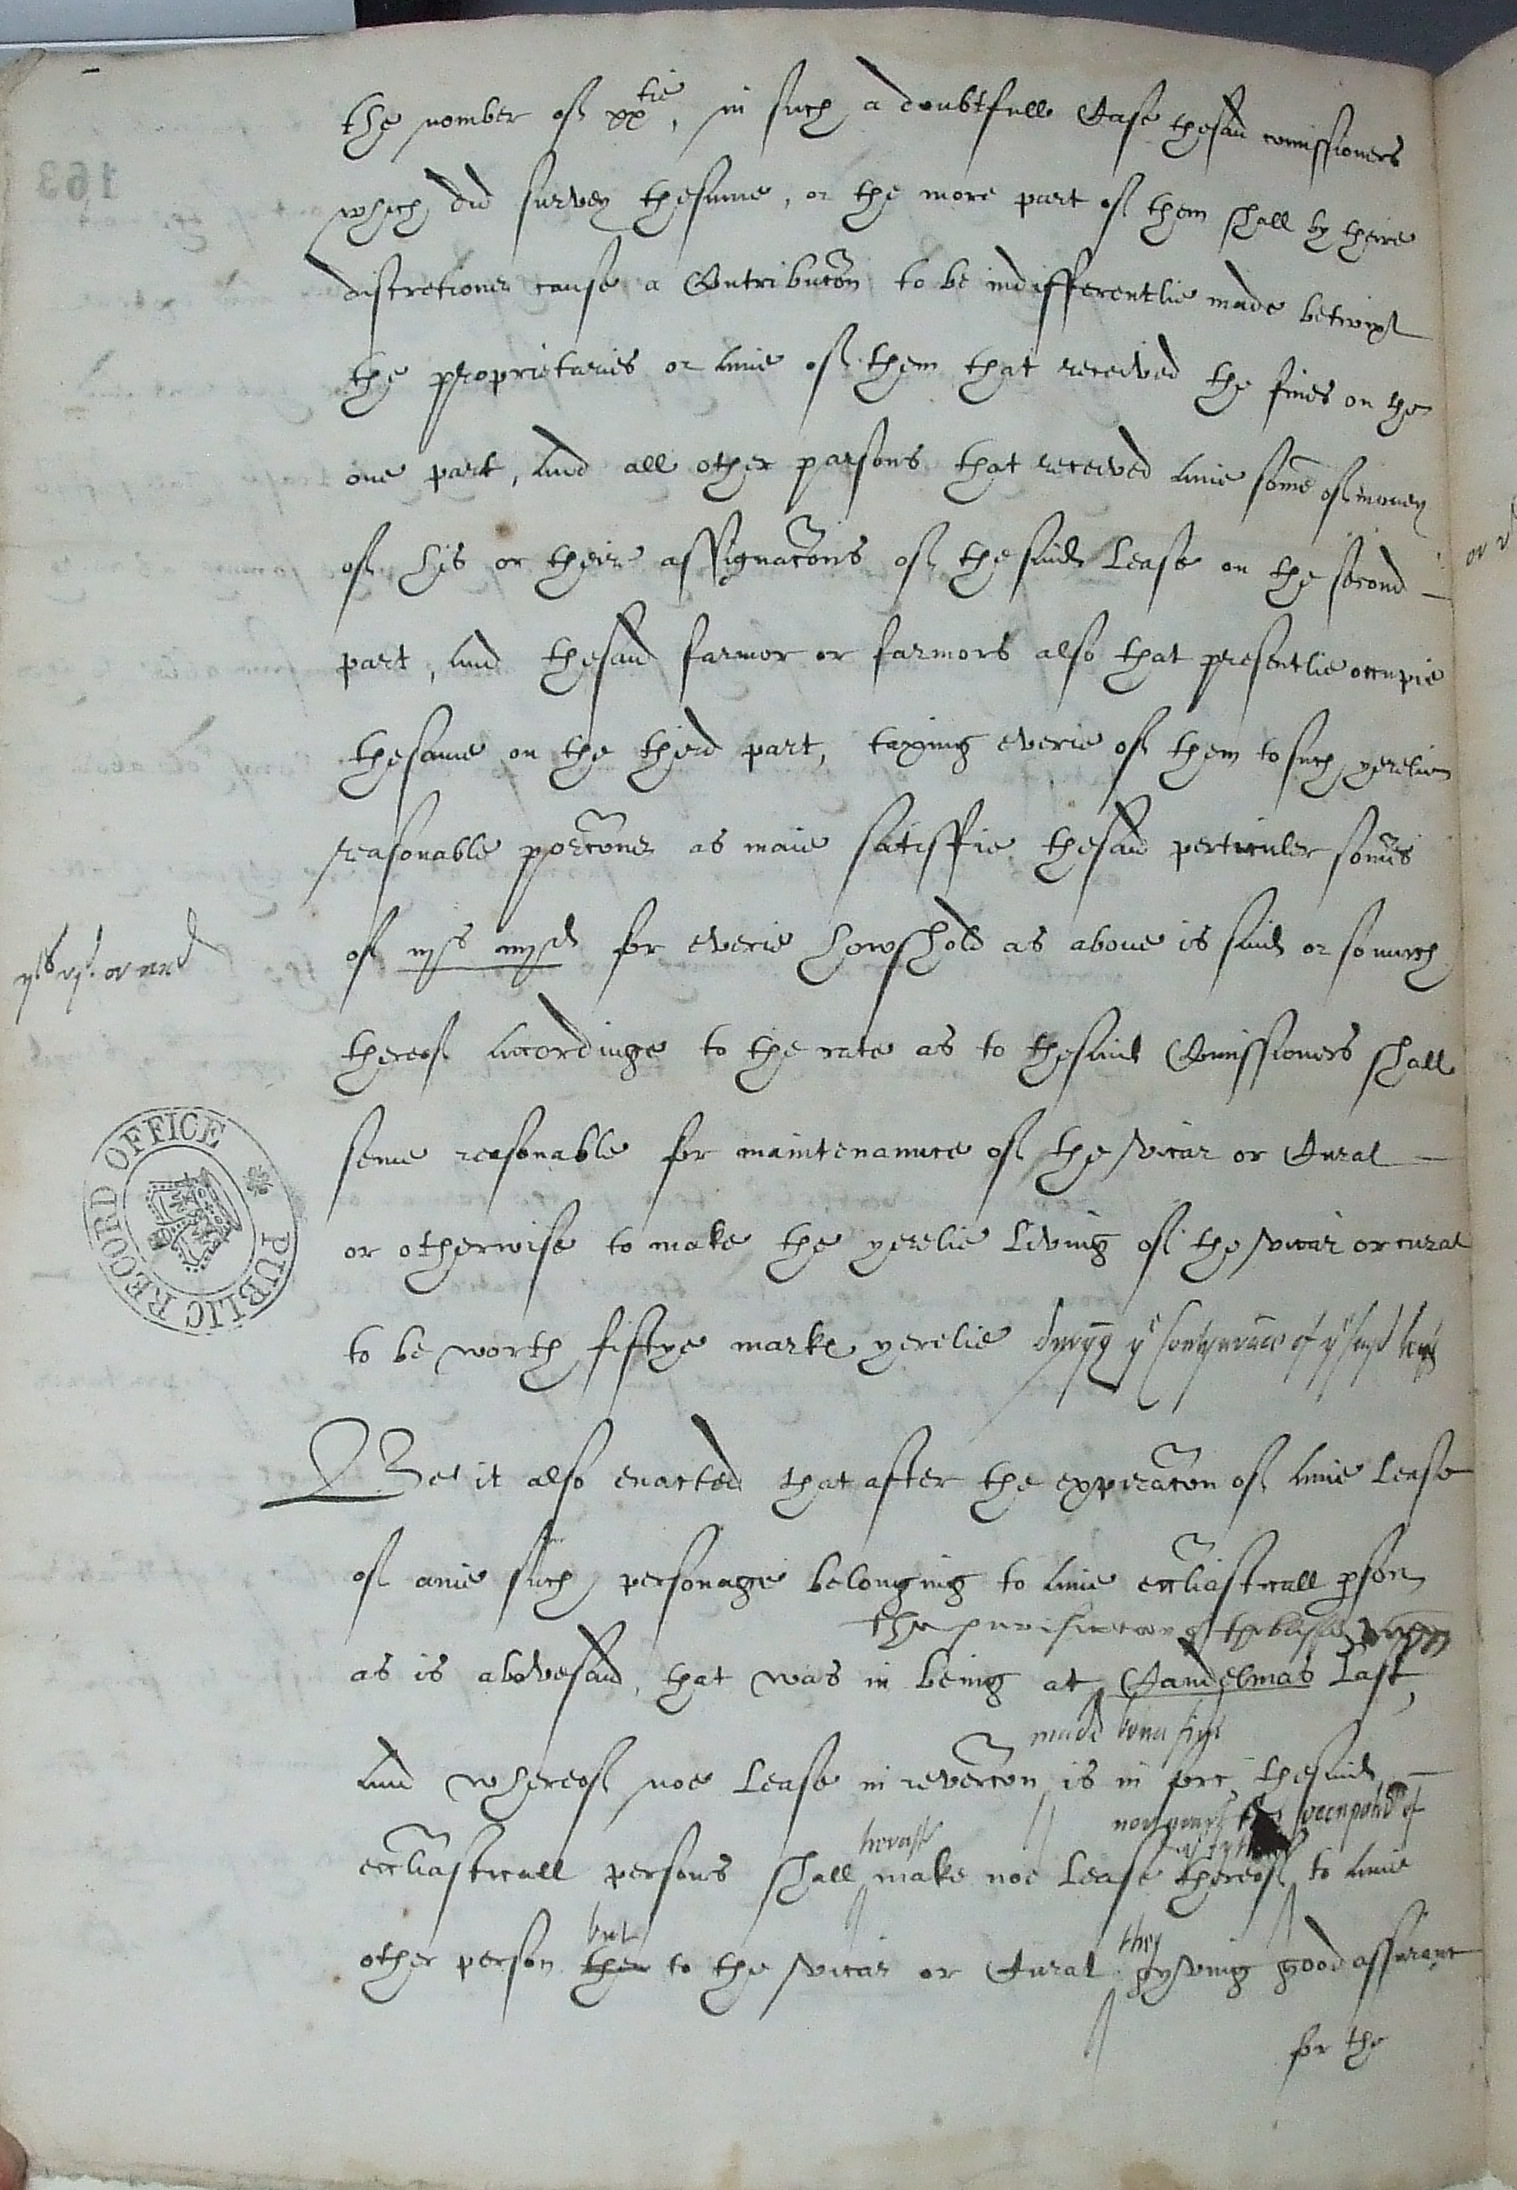 the nomber of xxtie, in such a doubtfull Case thesaid comissioners
which did survey thesame, or the more part of them shall by theire
discretions cause a Contribucon to be indifferentlie made betwixt
the proprietaries or anie of them that received the fines on the
one part, and all other parsons that received anie some of money
of his or their assignacons of thesaid Lease on the second
part, and thesaid farmor or farmors also that presentlie occupie
thesame on the third part, taxing everie of them to such yerelie
reasonable porcons as maie satisffie thesaid perticuler somes
of iijs iiijd for everie howshold as above is said or so much
thereof accordinge to the rate as to thesaid Comissioners shall
seme reasonable for maintenaunce of the vicar or Curat
or otherwise to make the yerelie Living of the vicar or curat
to be worth fiftye marke yerelie duryng ye contynuance of ye sayd leas
Be it also enacted that after the expiracon of anie Lease
of anie such personage belonging to anie eccliasticall pson
the purificacon of the blessed virgin
as is abovesaid, that was in being at Candelmas Last,
made bona fide
and whereof noe Lease in revercon is in force thesaid
eccliasticall persons shall make noe Lease thereof to anie
but they
other person then to the vicar or Curat gyving good assurance
for the
PUBLIC RECORD OFFICE
163